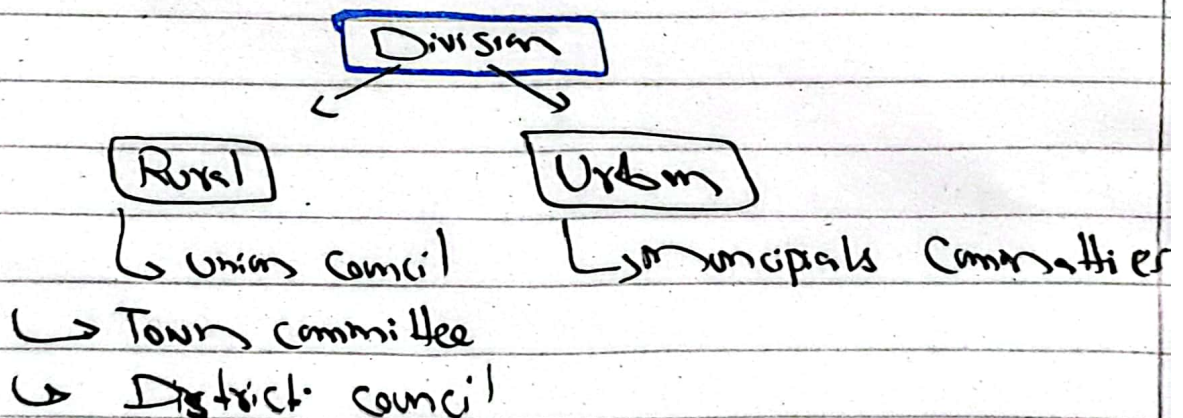 Division
Rural Urban
Union Council Muncipals Committies
Town committee
District council